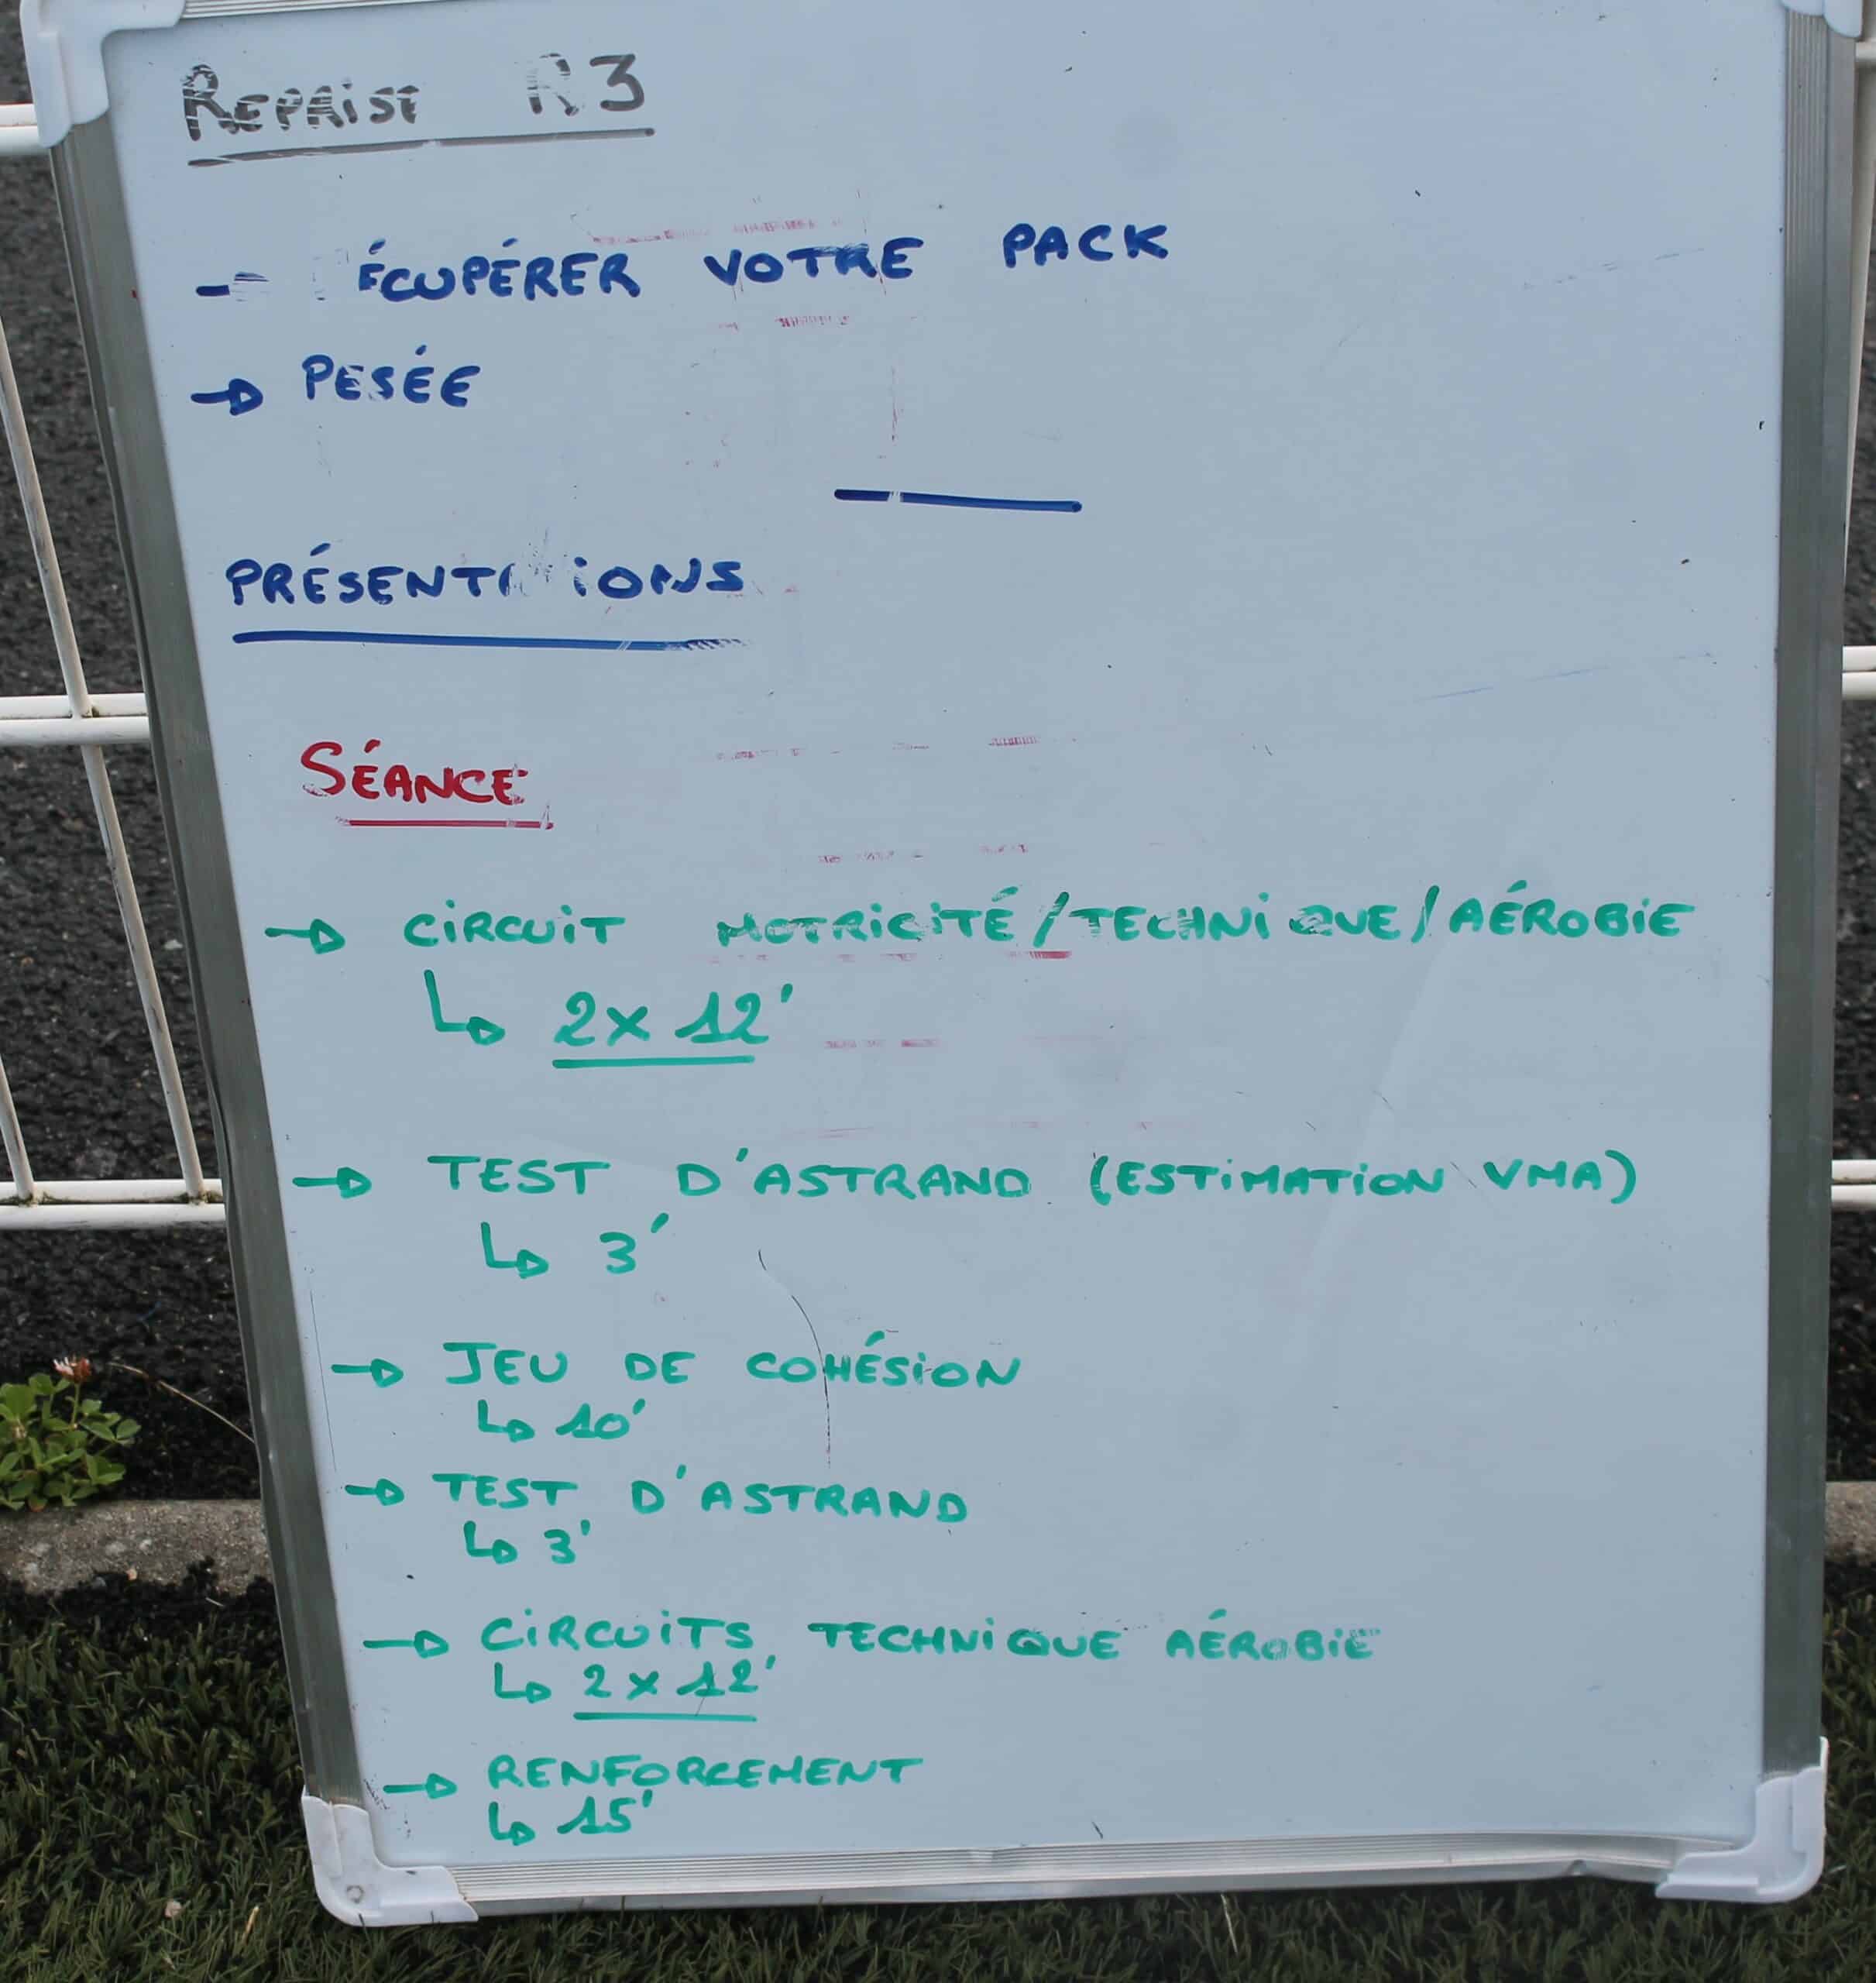 REPRISE R3
→ RÉCUPÉRER VOTRE PACK
→ PESÉE
PRÉSENTATIONS
SÉANCE
→ CIRCUIT MOTRICITÉ/TECHNIQUE/AÉROBIE
↳ 2x12'
→ TEST D'ASTRAND (ESTIMATION VMA)
↳ 3'
→ JEU DE COHÉSION
↳ 10'
→ TEST D'ASTRAND
↳ 3'
→ CIRCUITS TECHNIQUE AÉROBIE
↳ 2x12'
→ RENFORCEMENT
↳ 15'